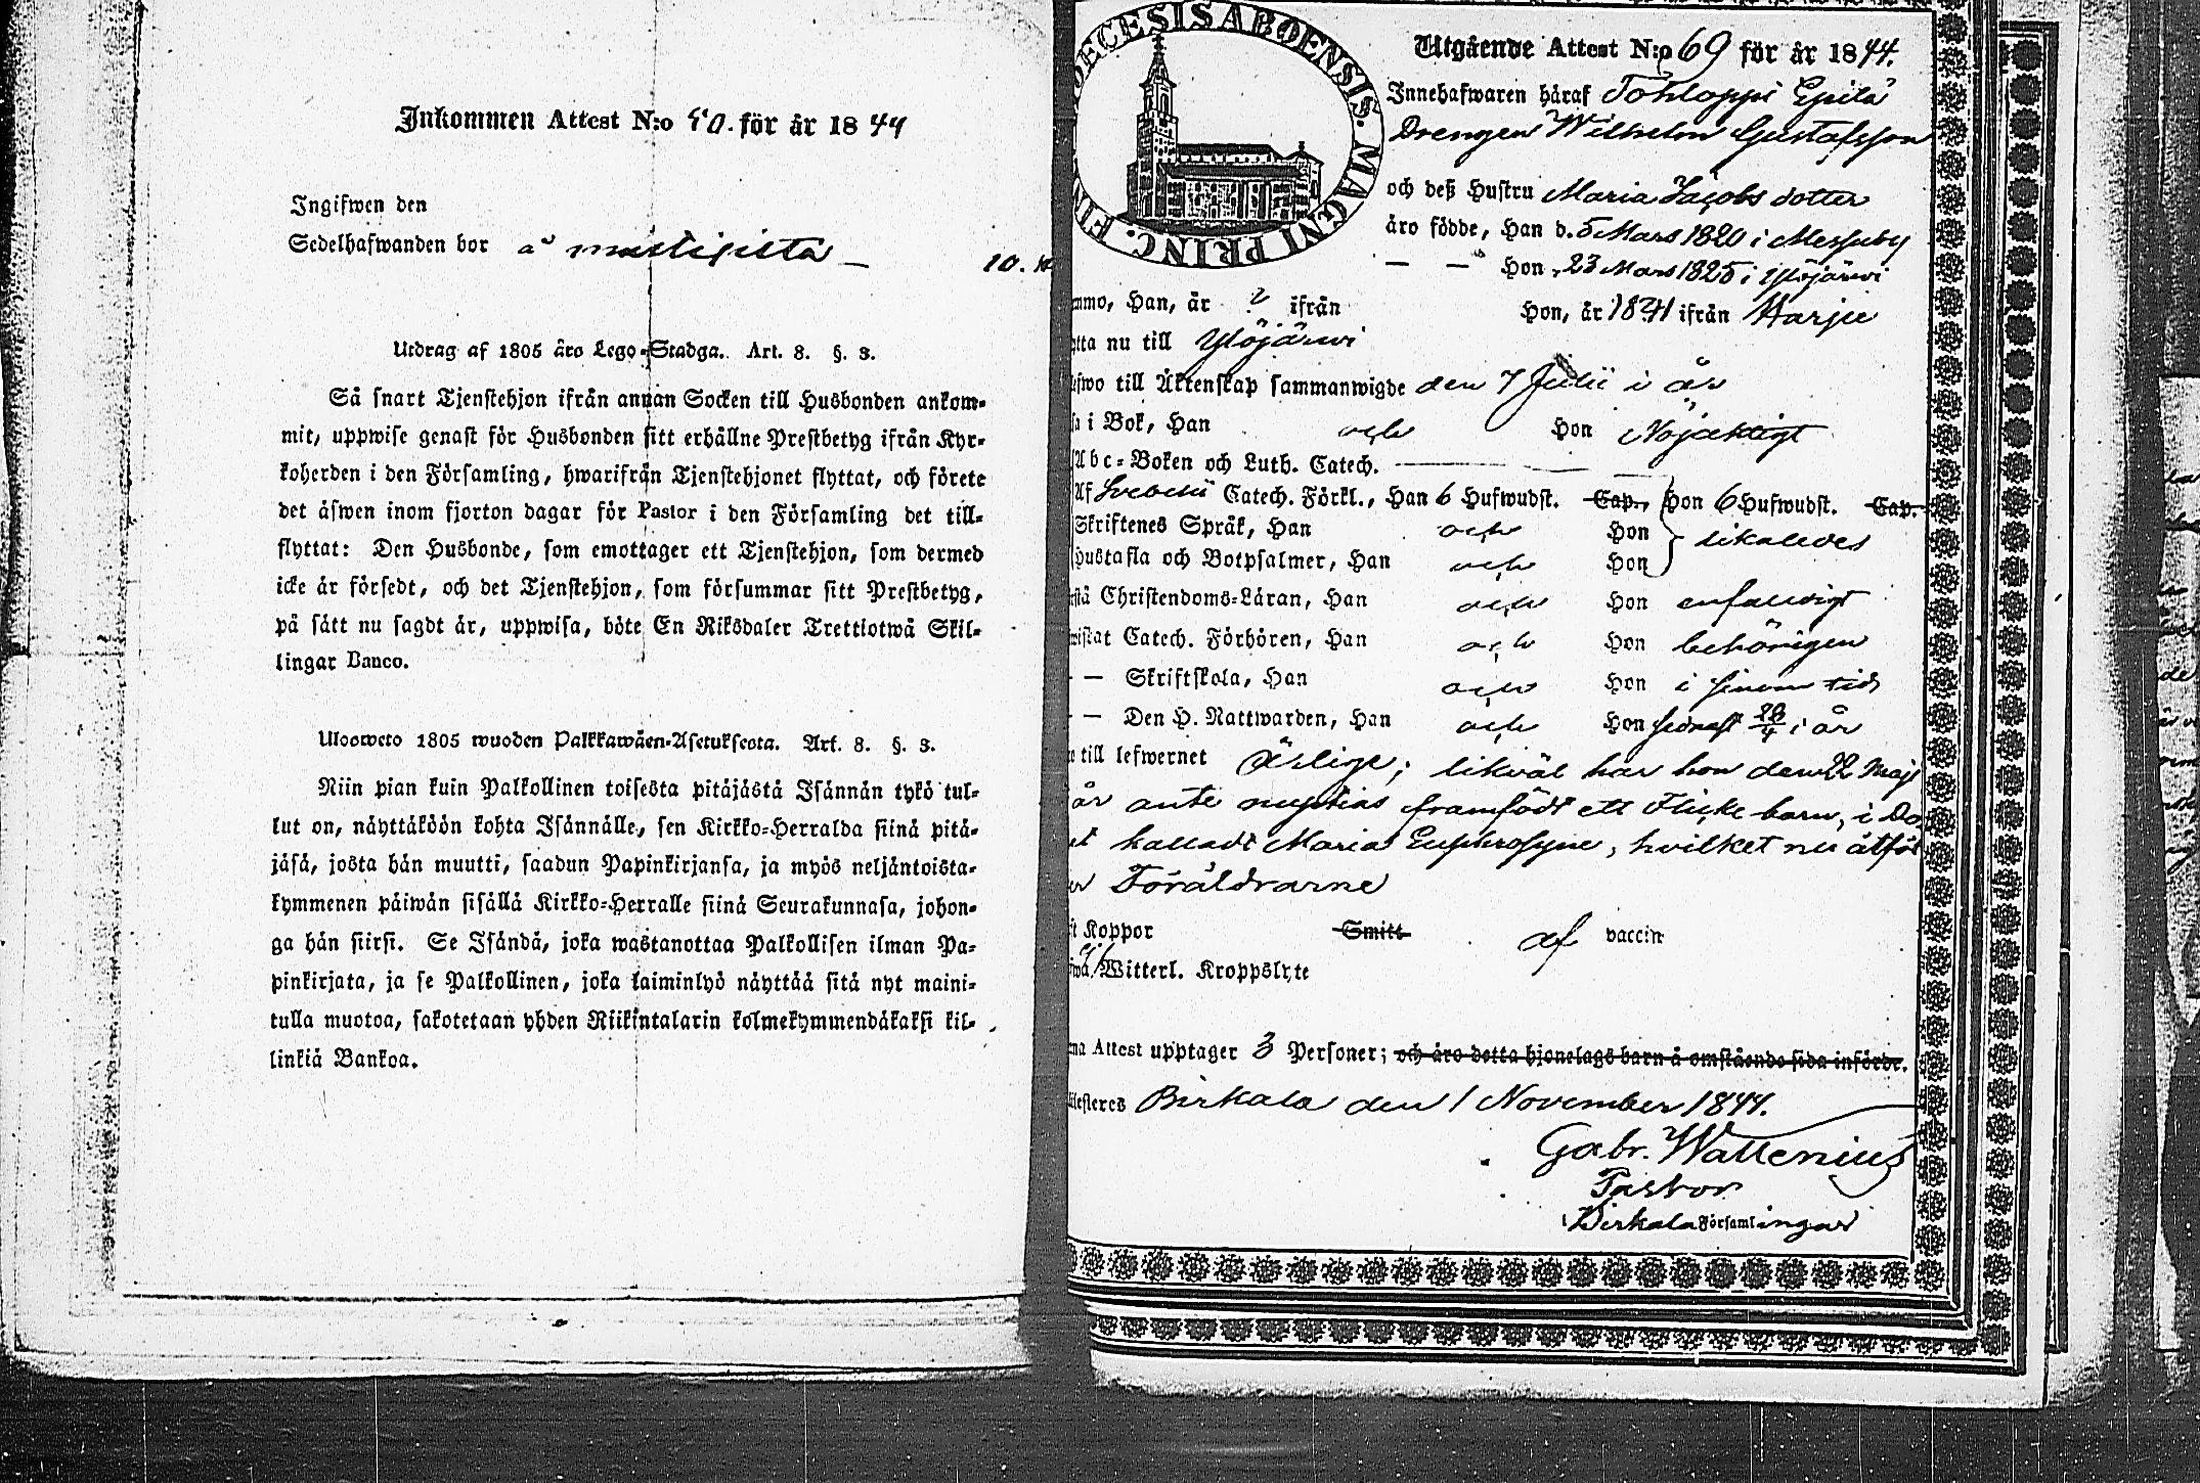 Inkommen Attest N:o 50. för år 1844
Ingifwen den
Sedelhafwanden bor å
10.
Utdrag af 1805 års Lego-Stadga. Art. 8. §. 3.
Så snart Tjenstehjon ifrån annan Socken till Husbonden ankom-
mit, uppwise genast för Husbonden sitt erhållne Prestbetyg ifrån Kyr-
koherden i den Församling, hwarifrån Tjenstehjonet flyttat, och förete
det äfwen inom fjorton dagar för Pastor i den Församling det till-
flyttat: Den Husbonde, som emottager ett Tjenstehjon, som dermed
icke är försedt, och det Tjenstehjon, som försummar sitt Prestbetyg,
på sätt nu sagdt är, uppwisa, böte En Riksdaler Trettiotwå Skil-
lingar Banco.
Ulosweto 1805 wuoden Palkkawäen-Asetuksesta. Art. 8. §. 3.
Niin pian kuin Palkollinen toisesta pitäjästä Isännän tykö tul-
lut on, näyttäköön kohta Isännälle, sen Kirkko-Herralda siinä pitä-
jäsä, josta hän muutti, saadun Papinkirjansa, ja myös neljäntoista-
kymmenen päiwän sisällä Kirkko-Herralle siinä Seurakunnasa, johon-
ga hän siirsi. Se Isändä, joka wastanottaa Palkollisen ilman Pa-
pinkirjata, ja se Palkollinen, joka laiminlyö näyttää sitä nyt maini-
tulla muotoa, sakotetaan yhden Riikintalarin kolmekymmendäkaksi kil-
linkiä Bankoa.
DIECESIS ABOENSIS. MAGNI PRINC. FIN
Utgående Attest N:o 69 för år 1844.
Innehafwaren häraf Tohloppi Epilä
Drengen Wilhelm Gustafsson
och deß Hustru Maria Jacobsdotter
äro födde, Han d. 5 Mars 1820 i Messuby
— — Hon 23 Mars 1825 i Ylöjärwi
mmo, Han, år ? ifrån Hon, år 1841 ifrån Harju
tta nu till Ylöjärwi
fwo till Äktenskap sammanwigde den 7 Julii i år
a i Bok, Han och Hon Nöjaktigt
Abc-Boken och Luth. Catech. —
Af Svebelii Catech. Förkl., Han 6 Hufwudst. Cap., Hon 6 Hufwudst. Cap.
Skriftenes Språk, Han och Hon likaledes
Hustafla och Botpsalmer, Han och Hon
rstå Christendoms-Läran, Han och Hon enfaldigt
wistat Catech. Förhören, Han och Hon behörigen
— — Skriftskola, Han och Hon i sinom tid
— — Den H. Nattwarden, Han och Hon sednast 28/4 i år
e till lefwernet ärlige; likväl har hon den 22 Maji
år ante nuptias framfödt ett Flicke barn, i Do
et kalladt Maria Euphrosyne, hvilket nu åtföl
er Föräldrarne
ft Koppor Smitt af vaccin
fwa ej Witterl. Kroppslyte
na Attest upptager 3 Personer; och äro detta hjonelags barn å omstående sida införde.
testeres Birkala den 1 November 1844.
Gabr. Wallenius
Pastor
i Birkala Församlingar